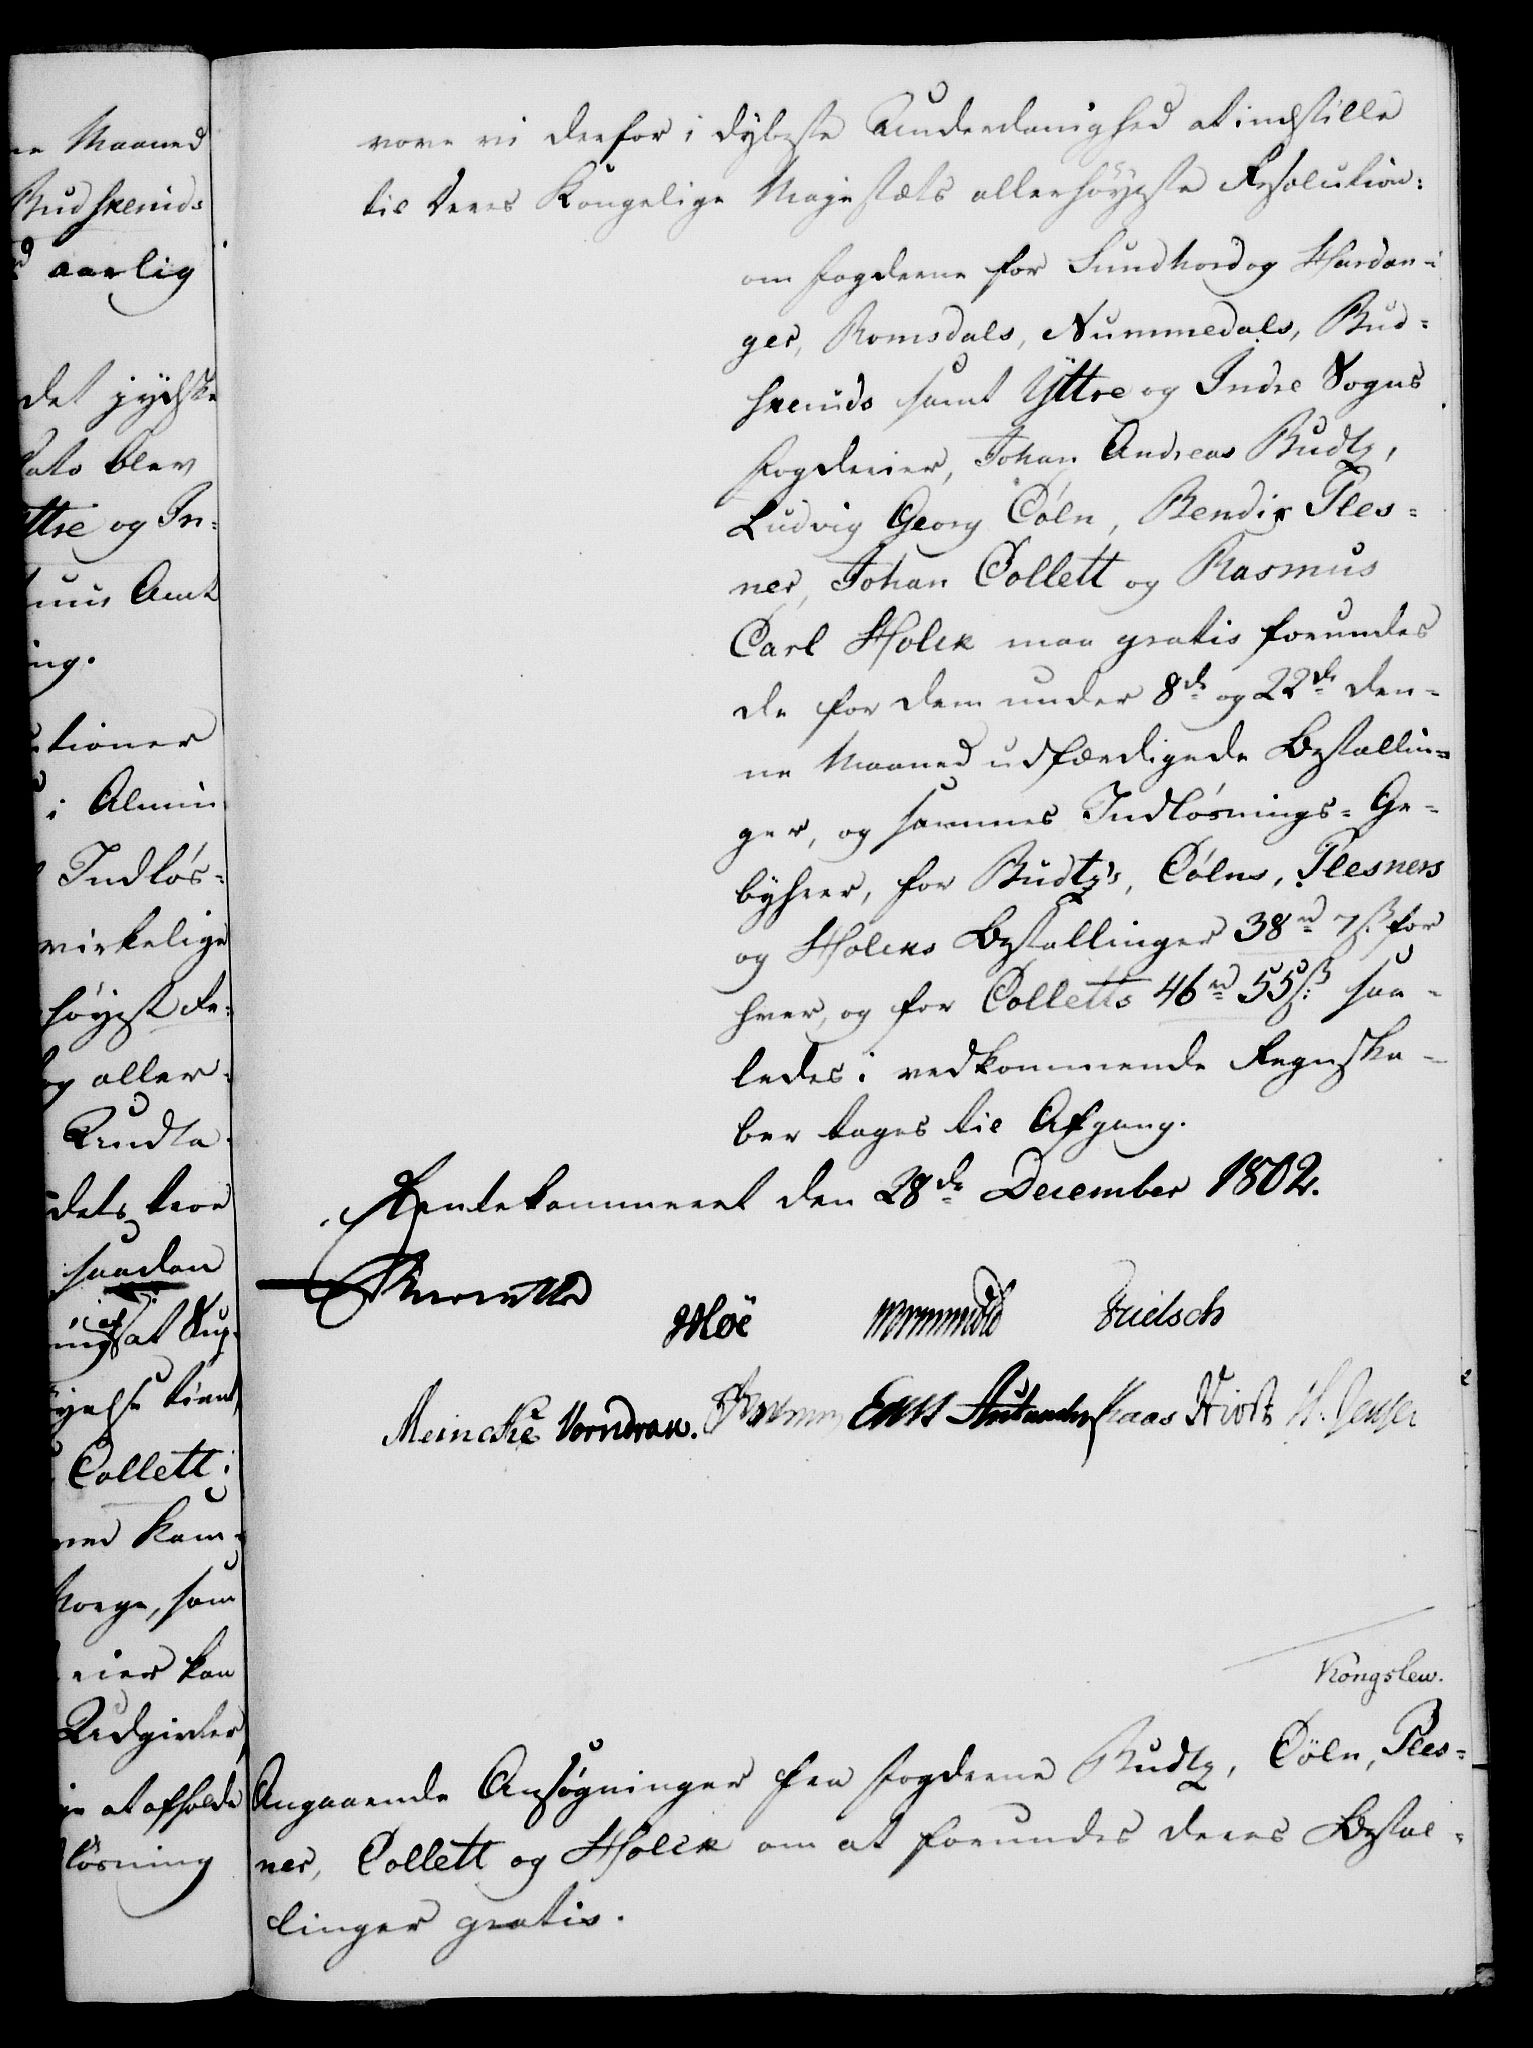 ne Maaned
Budskruds
aarlig
det jydske
Pats blev
ttre og In-
Amt
ing.
tioner
i Almin
Indløs-
virkelige
høyst Re-
og aller-
Undta
dets troe
saadan
at Sup-
tient,
Collett i
Kam-
Norge, som
eier kan
Udgivter,
at afholde
løsning
vove vi derfor i dybeste Underdanighed at indstille
til Deres Kongelige Majestæts allerhøyeste Resolution:
om Fogderne for Sundhord og Hardan-
ger, Romsdals, Nummedals, Bud-
skruds samt Yttre og Indre Sogns
Fogderier, Johan Andreas Budtz,
Ludvig Georg Cöln, Bendix Ples-
ner, Johan Collett og Rasmus
Carl Holck maa gratis forundes
de for dem under 8de og 22de den-
ne Maaned udfærdigede Bestallin-
ger, og sammes Indløsnings-Ge-
byhrer, for Budtz's, Cölns, Plesners
og Holcks Bestallinger 38rd 7ß for
hver, og for Colletts 46rd 55ß: saa-
ledes i vedkommende Regnska-
ber tages til Afgang.
Rentekammeret den 28de December 1802.
Reventlow
Höe Wormskiold Fridsch
Meincke Vorndran. Knudsen Hiort H. Jensen
Kongslew.
Angaaende Ansøgninger fra Fogderne Budtz, Cöln, Ples-
ner, Collett og Holck om at forundes deres Bestal-
linger gratis.